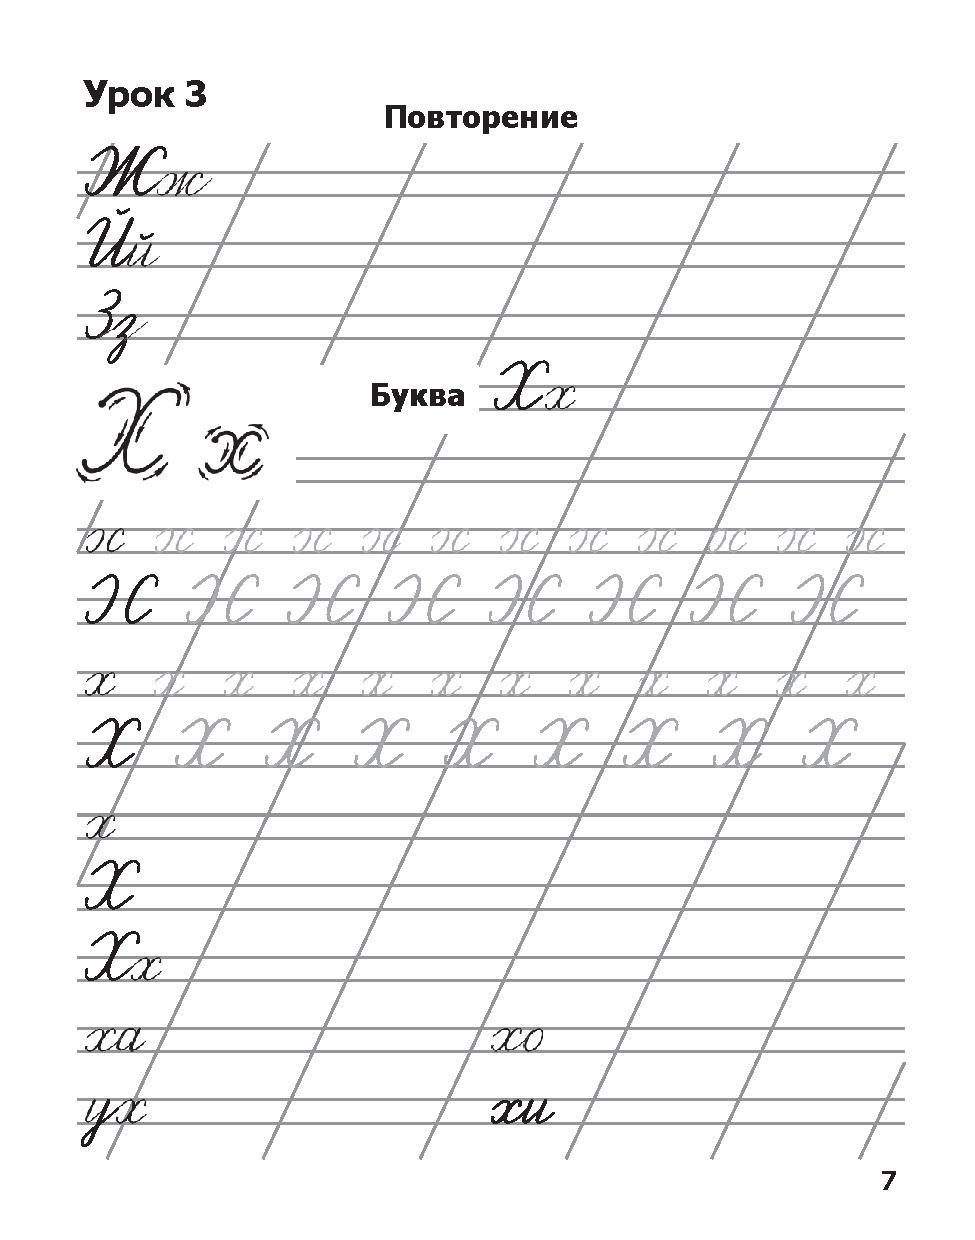 Урок 3
Повторение
Жж
Йй
Зз
Буква Хх
Х х
х х х х х х х х х х х х
Х Х Х Х Х Х Х Х
х х х х х х х х х х х х
Х Х Х Х Х Х Х Х Х
х
Х
Хх
ха хо
ух хи
7